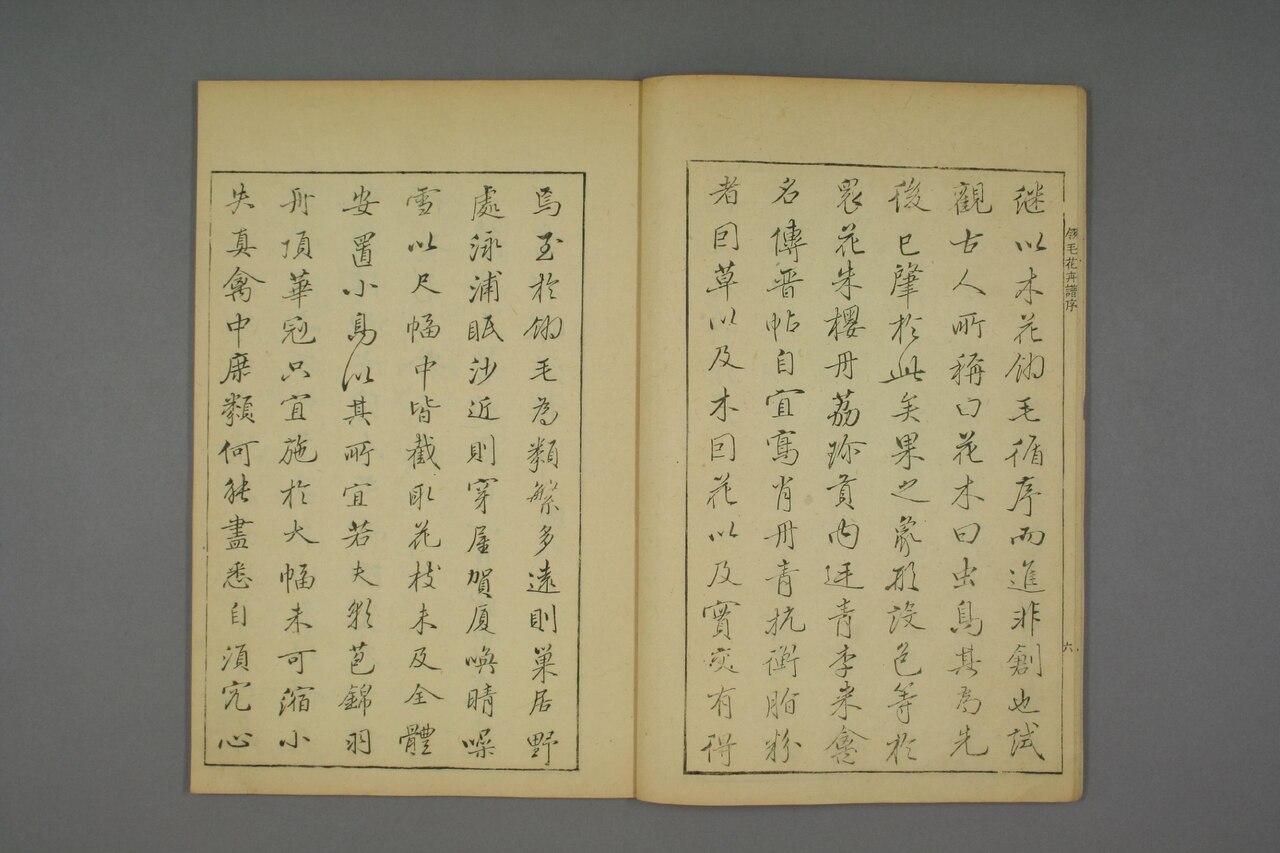 継以木花翎毛循序而進非創也試
觀古人所稱曰花木曰虫鳥其為先
後已肇於此矣果之象形設色等於
衆花朱櫻丹荔珎貢內廷青李来禽
名傳晋帖自宜寫肖丹青抗衡脂粉
者曰草以及木曰花以及實次有得
翎毛花卉譜序
六
焉至於翎毛為類繁多遠則巢居野
處泳浦眠沙近則穿屋賀厦喚晴噪
雪以尺幅中皆截取花枝未及全體
安置小鳥以其所宜若夫彩苞錦羽
丹頂華冠只宜施於大幅未可縮小
失真禽中庶類何能盡悉自須究心